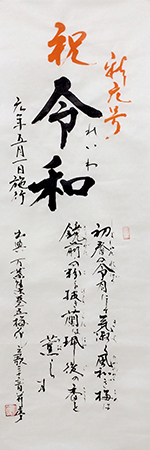 新元号
祝
令和
れいわ
元年五月一日施行
初春の令月にして
気淑く風和ぎ梅は
鏡前の粉を披き蘭は珮後の香を
薫らす
出典 万葉集巻五梅花の歌三十二首并序